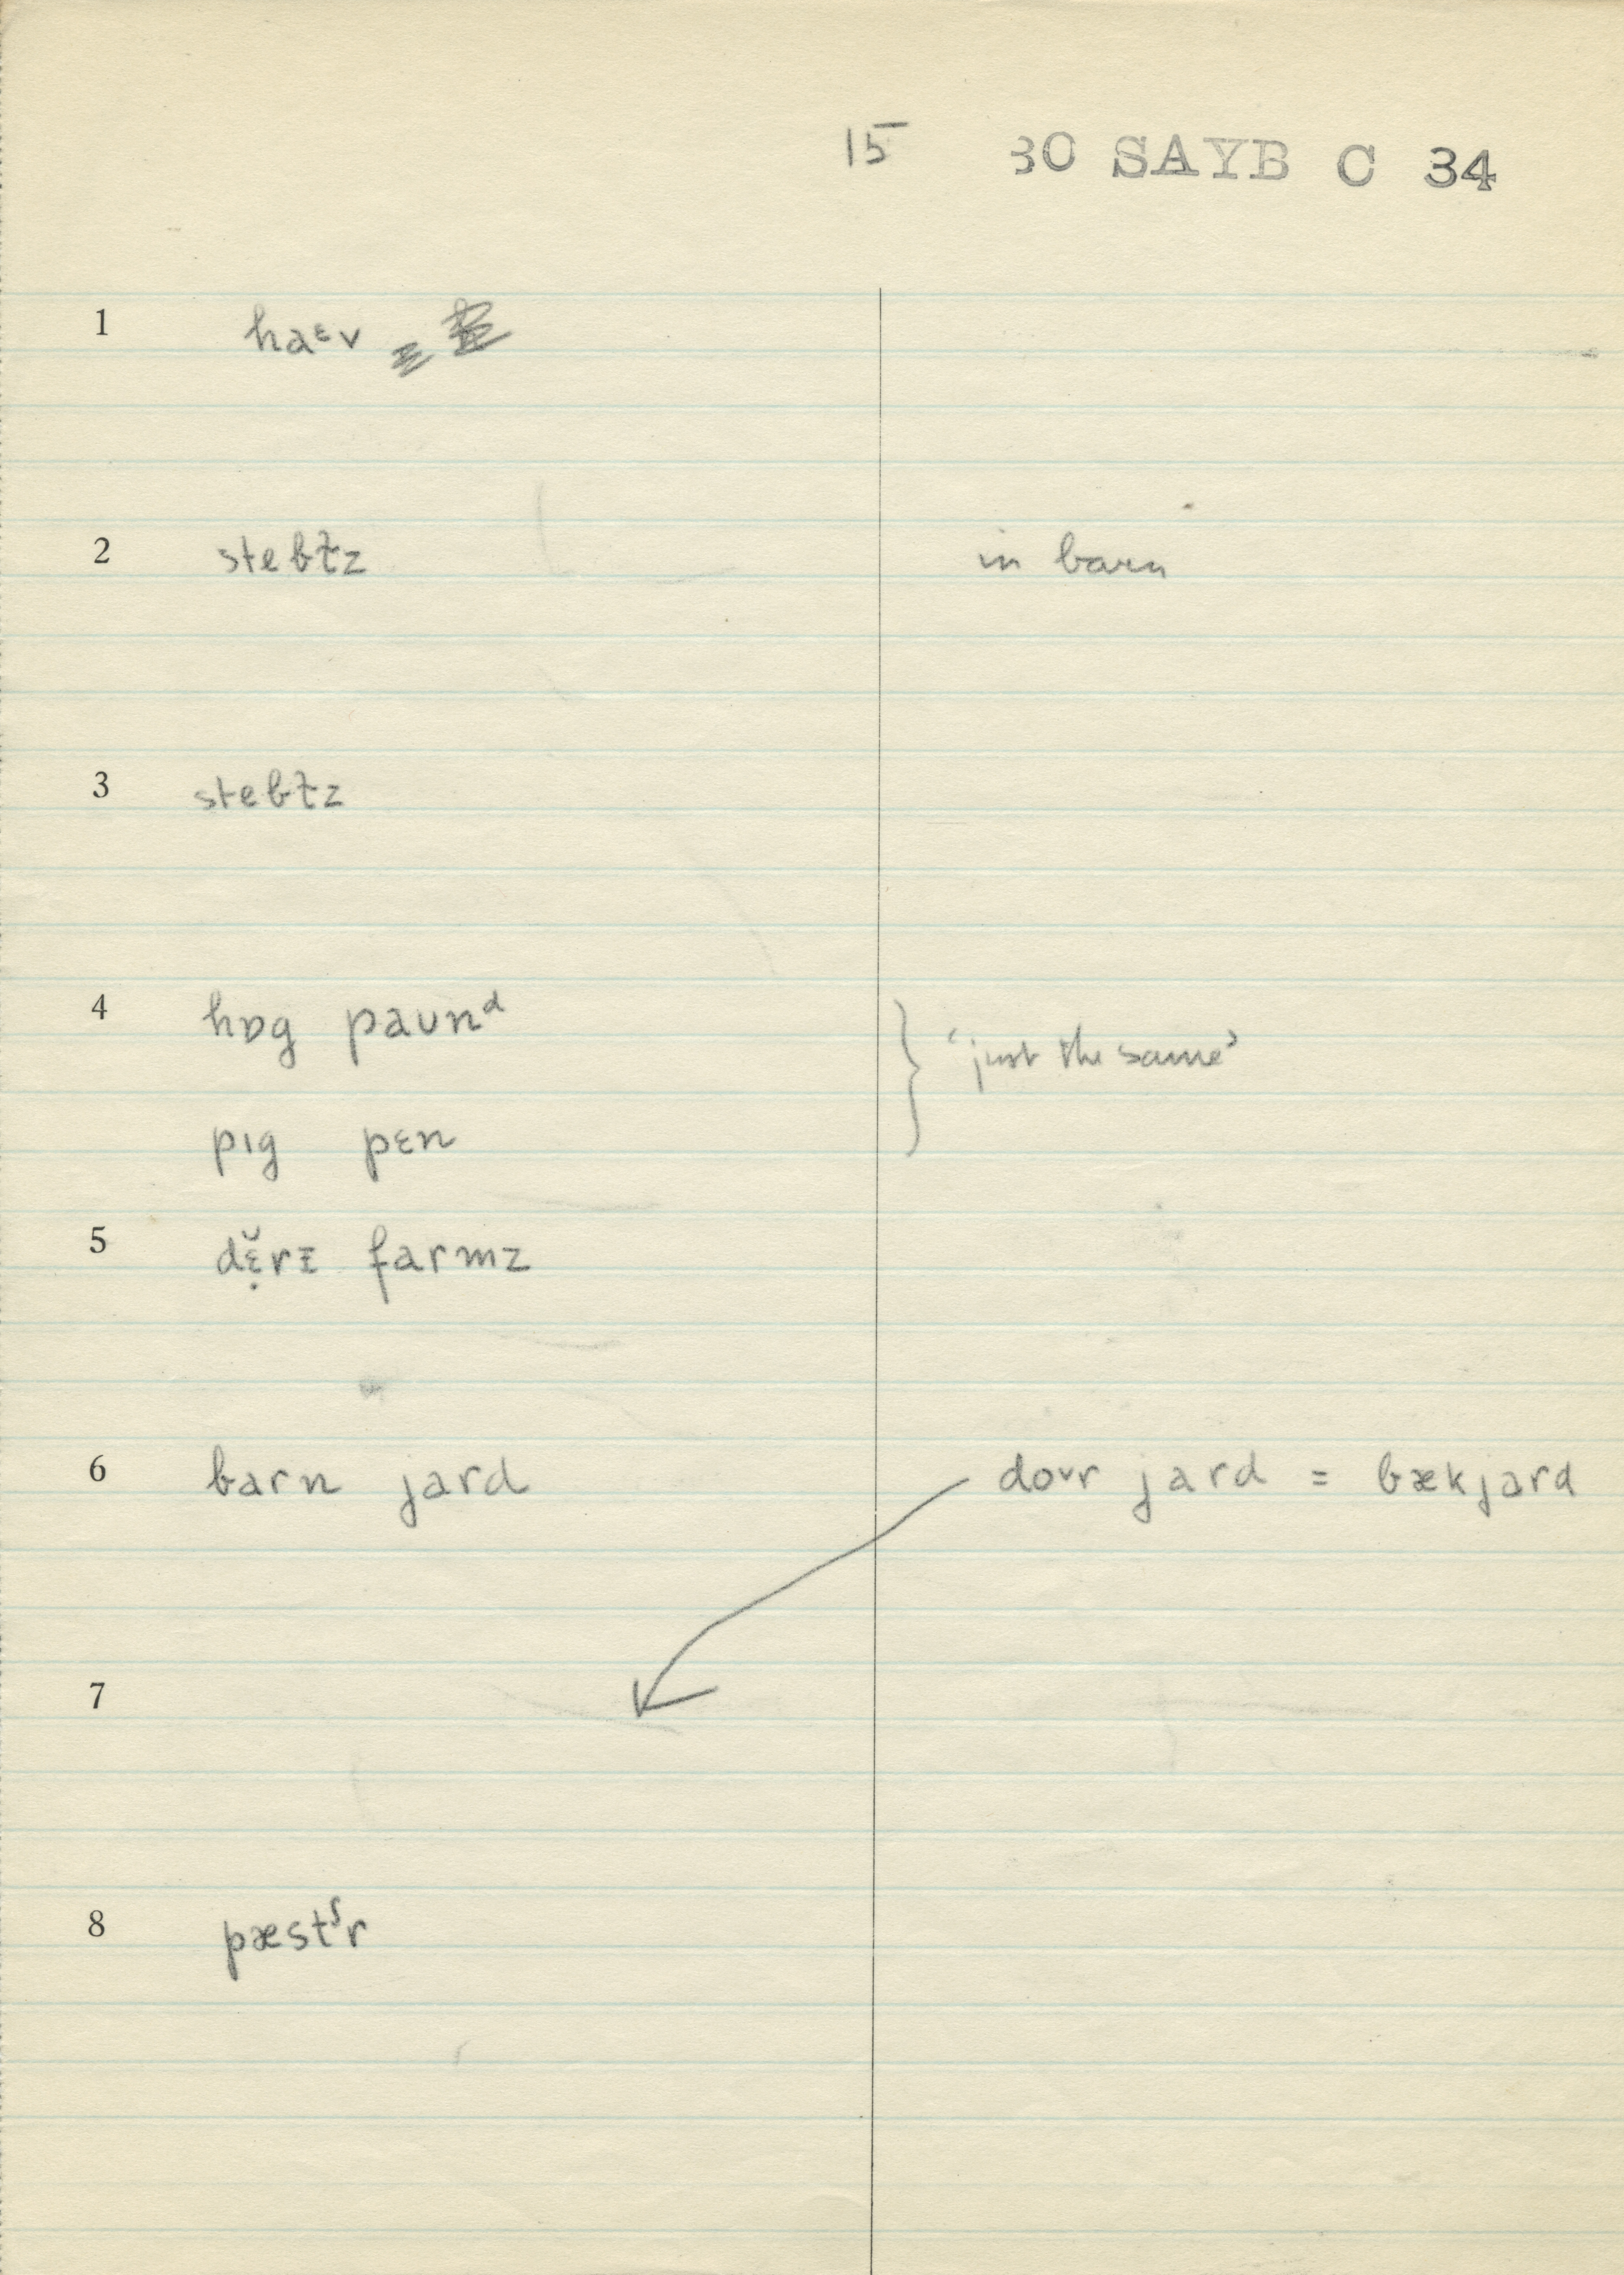 15 30 SAYB C 34
1 haᵋv
2 stebɫz in barn
3 stebɫz
4 hɒg paʊnᵈ } 'just the same'
pɪg pɛn
5 dɛ̣̆rɪ farmz
6 barn jard doᴠr jard = bækjard
7
8 pæstᶴr